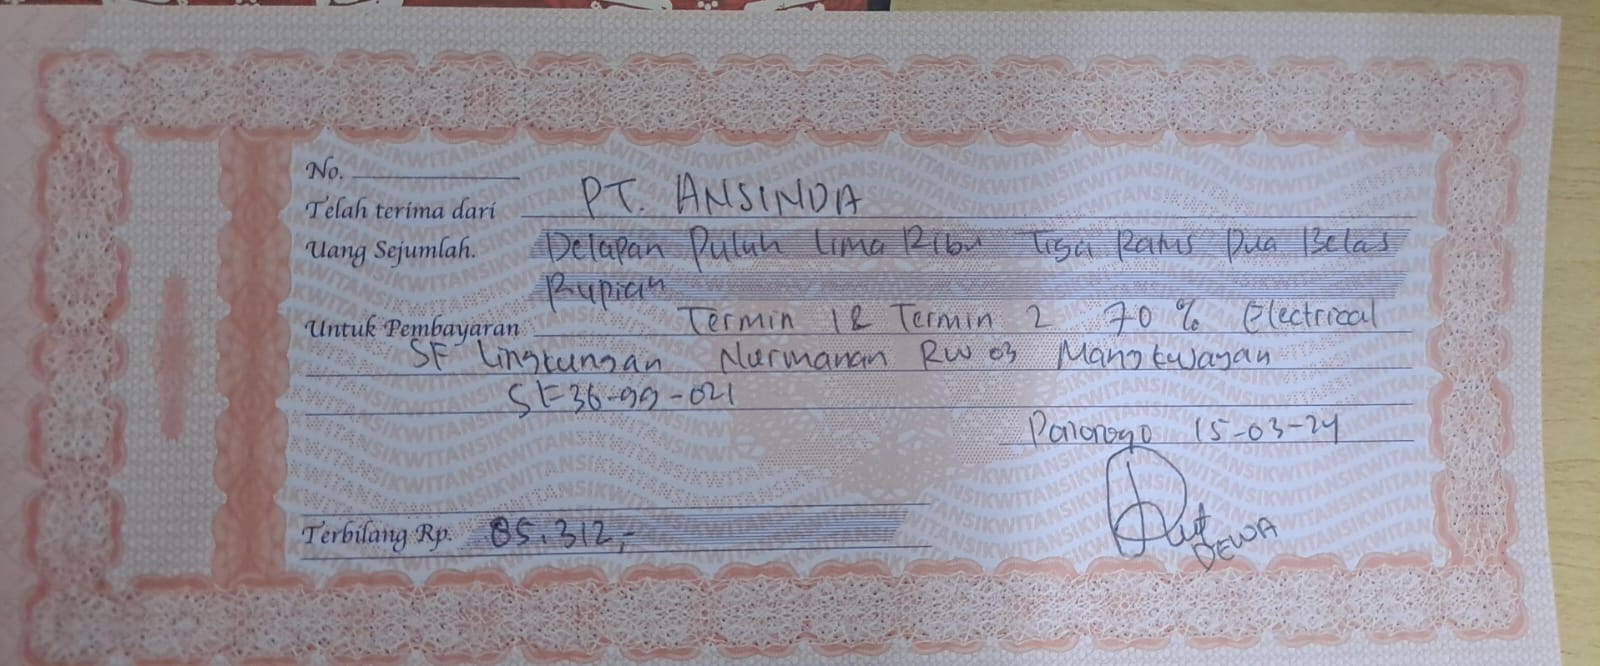 No.
Telah terima dari PT. ANSINDA
Uang Sejumlah. Delapan Puluh Lima Ribu Tiga Ratus Dua Belas
Rupiah
Untuk Pembayaran Termin 1 & Termin 2 70 % Electrical
SF Lingkungan Nurmanan RW 03 Mangkuyayan
SF36-99-021
Ponorogo 15-03-24
Terbilang Rp. 85.312,-
DEWA